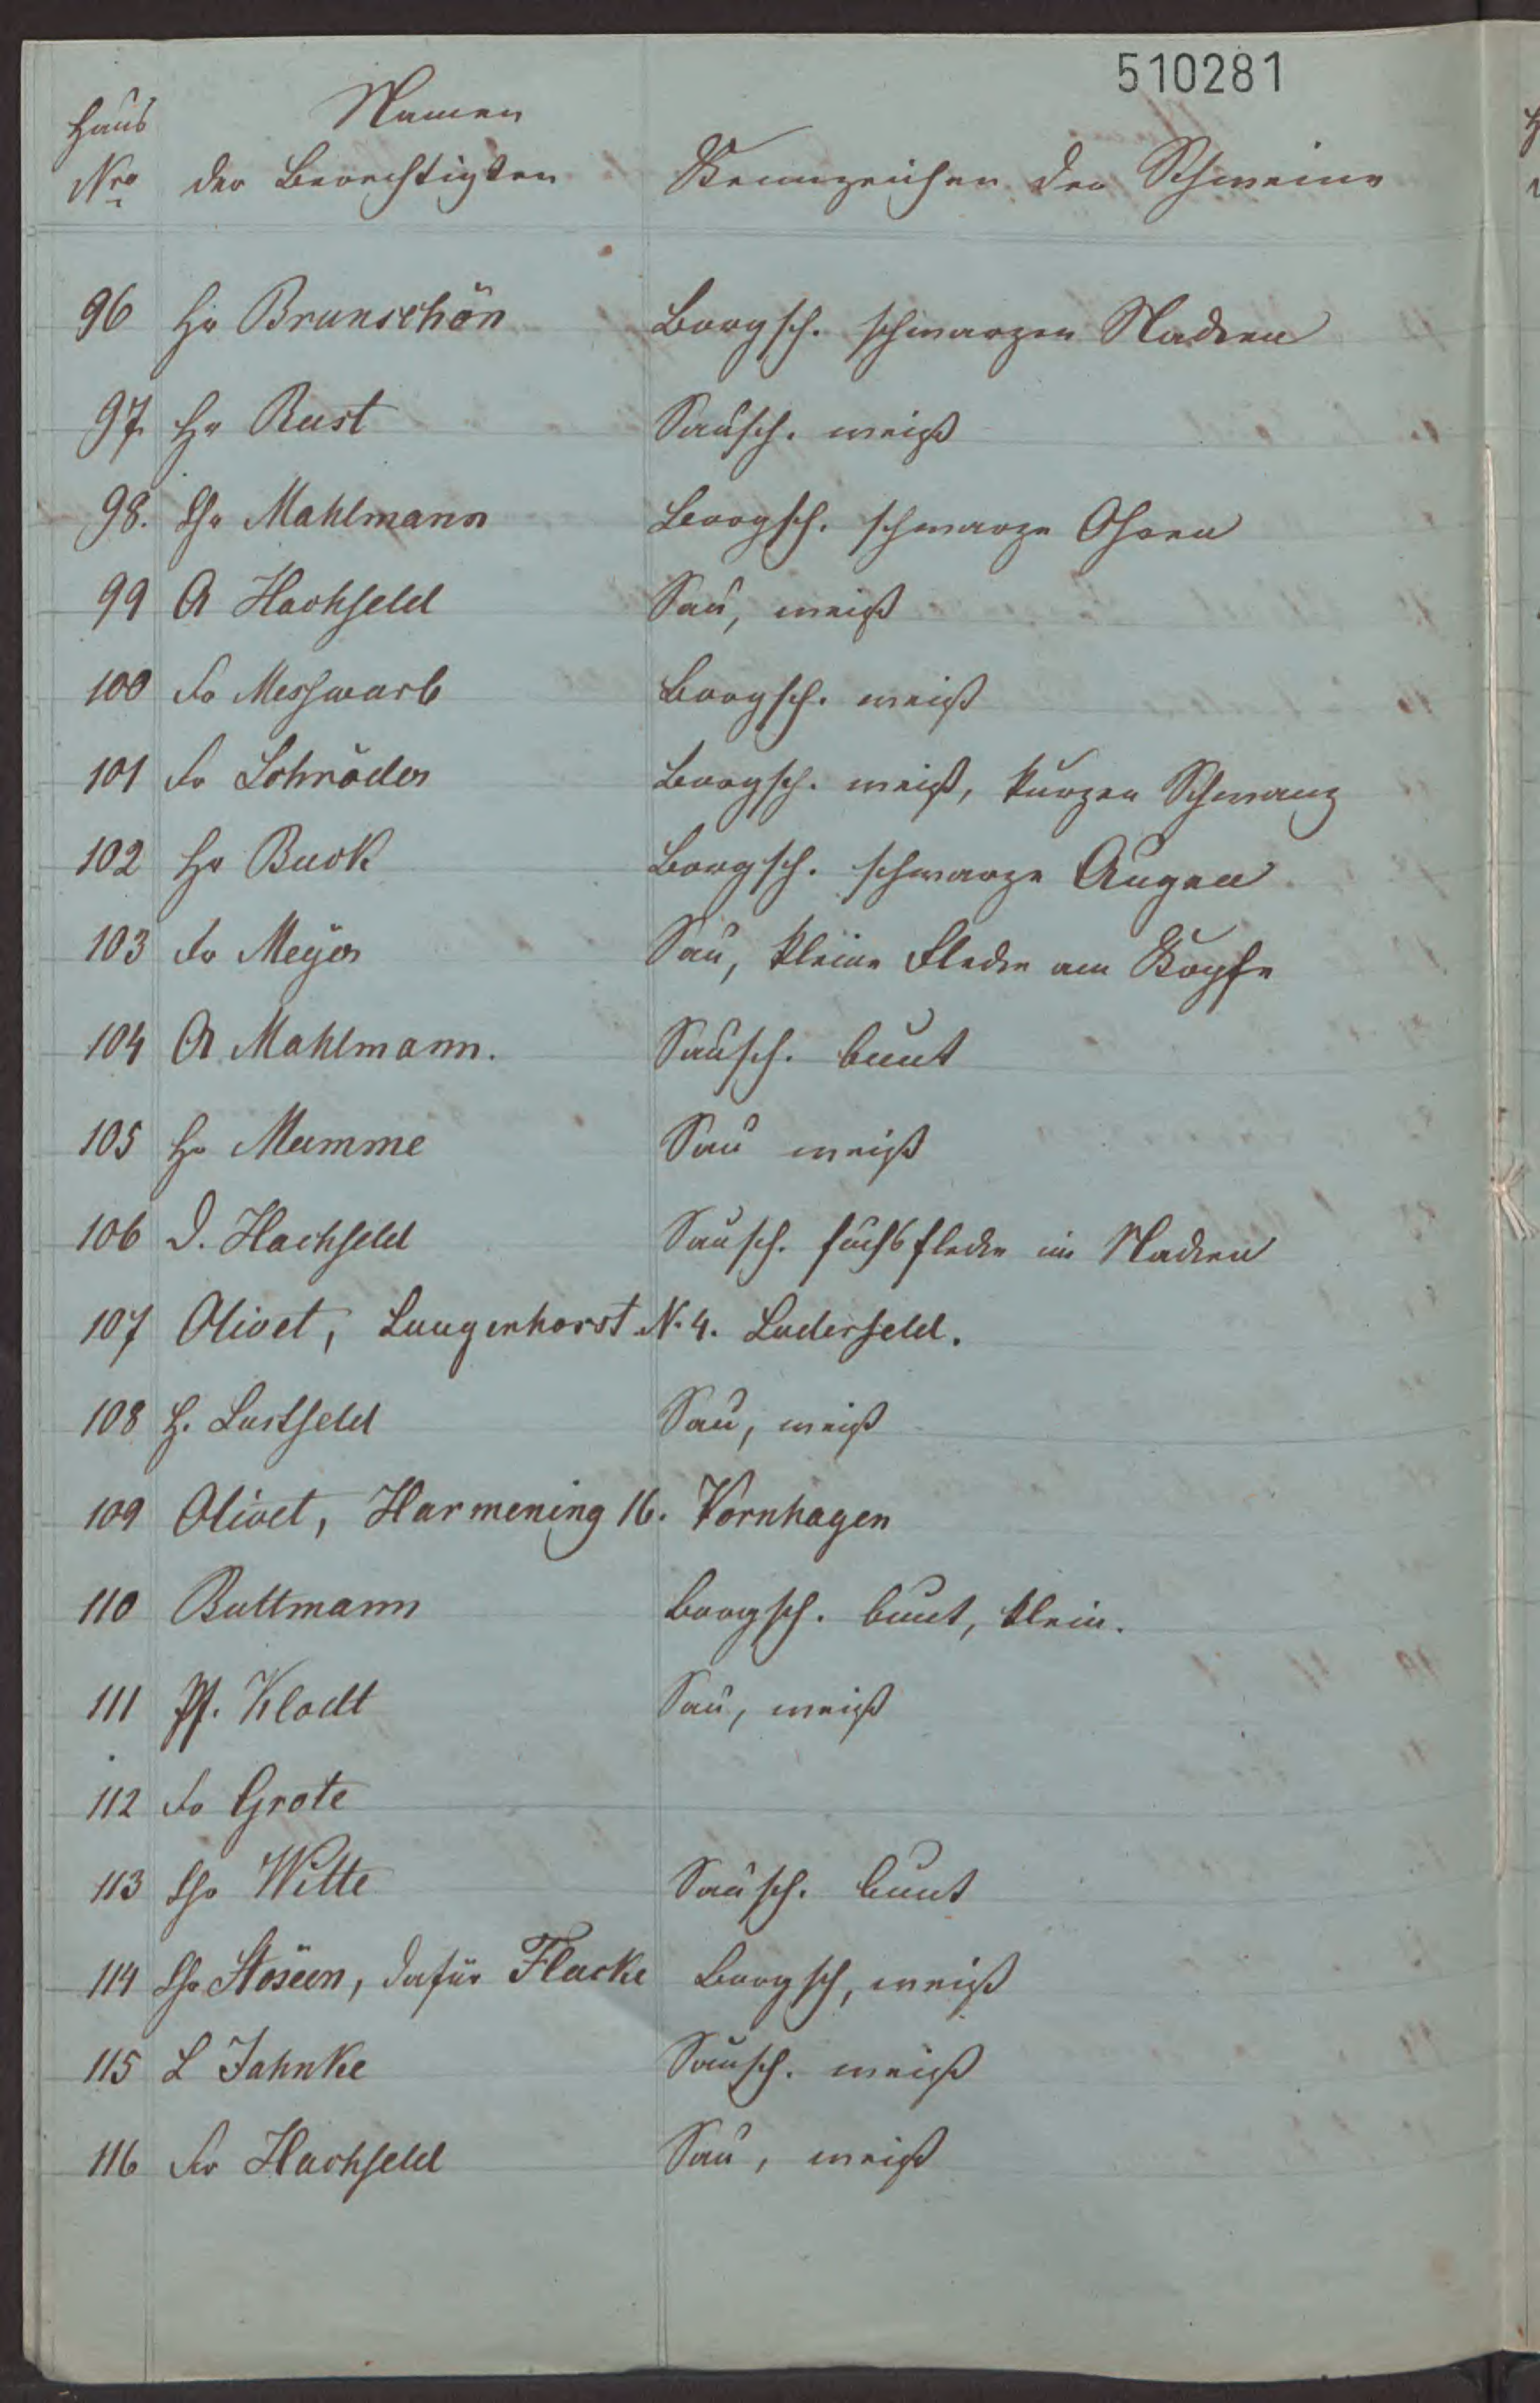 510281
Haus Namen
Nro der Berechtigten Kennzeichen der Schweine
96 Hr Brunschön Borgsch. schwarzen Nacken
97. Hr Rust Sausch. weiß
98. Chr Mahlmann Borgsch. schwarze Ohren
99 A Hachfeld Sau, weiß
100 Fr Messwarb Borgsch. weiß
101 Fr Schröder Borgsch. weiß, kurzen Schwanz
102 Hr Buck Borgsch. schwarze Augen
103 Fr Meyer Sau, kleine Flecke am Kopfe
104 A Mahlmann. Sausch. bunt
105 Hr Mumme Sau weiß
106 D. Hachfeld Sausch. fuchsflecke im Nacken
107 Olivet, Langenhorst N. 4. Luderfeld.
108 H. Lustfeld Sau, weiß
109 Olivet, Harmening 16. Vornhagen
110 Buttmann Borgsch. bunt, klein.
111 Pf. Klodt Sau, weiß
112 Fr Grote
113 Chr Witte Sausch. bunt
114 Chr , dafür Flacke Borgsch, weiß
115 L Jahnke Sausch. weiß
116 Fr Hachfeld Sau, weiß